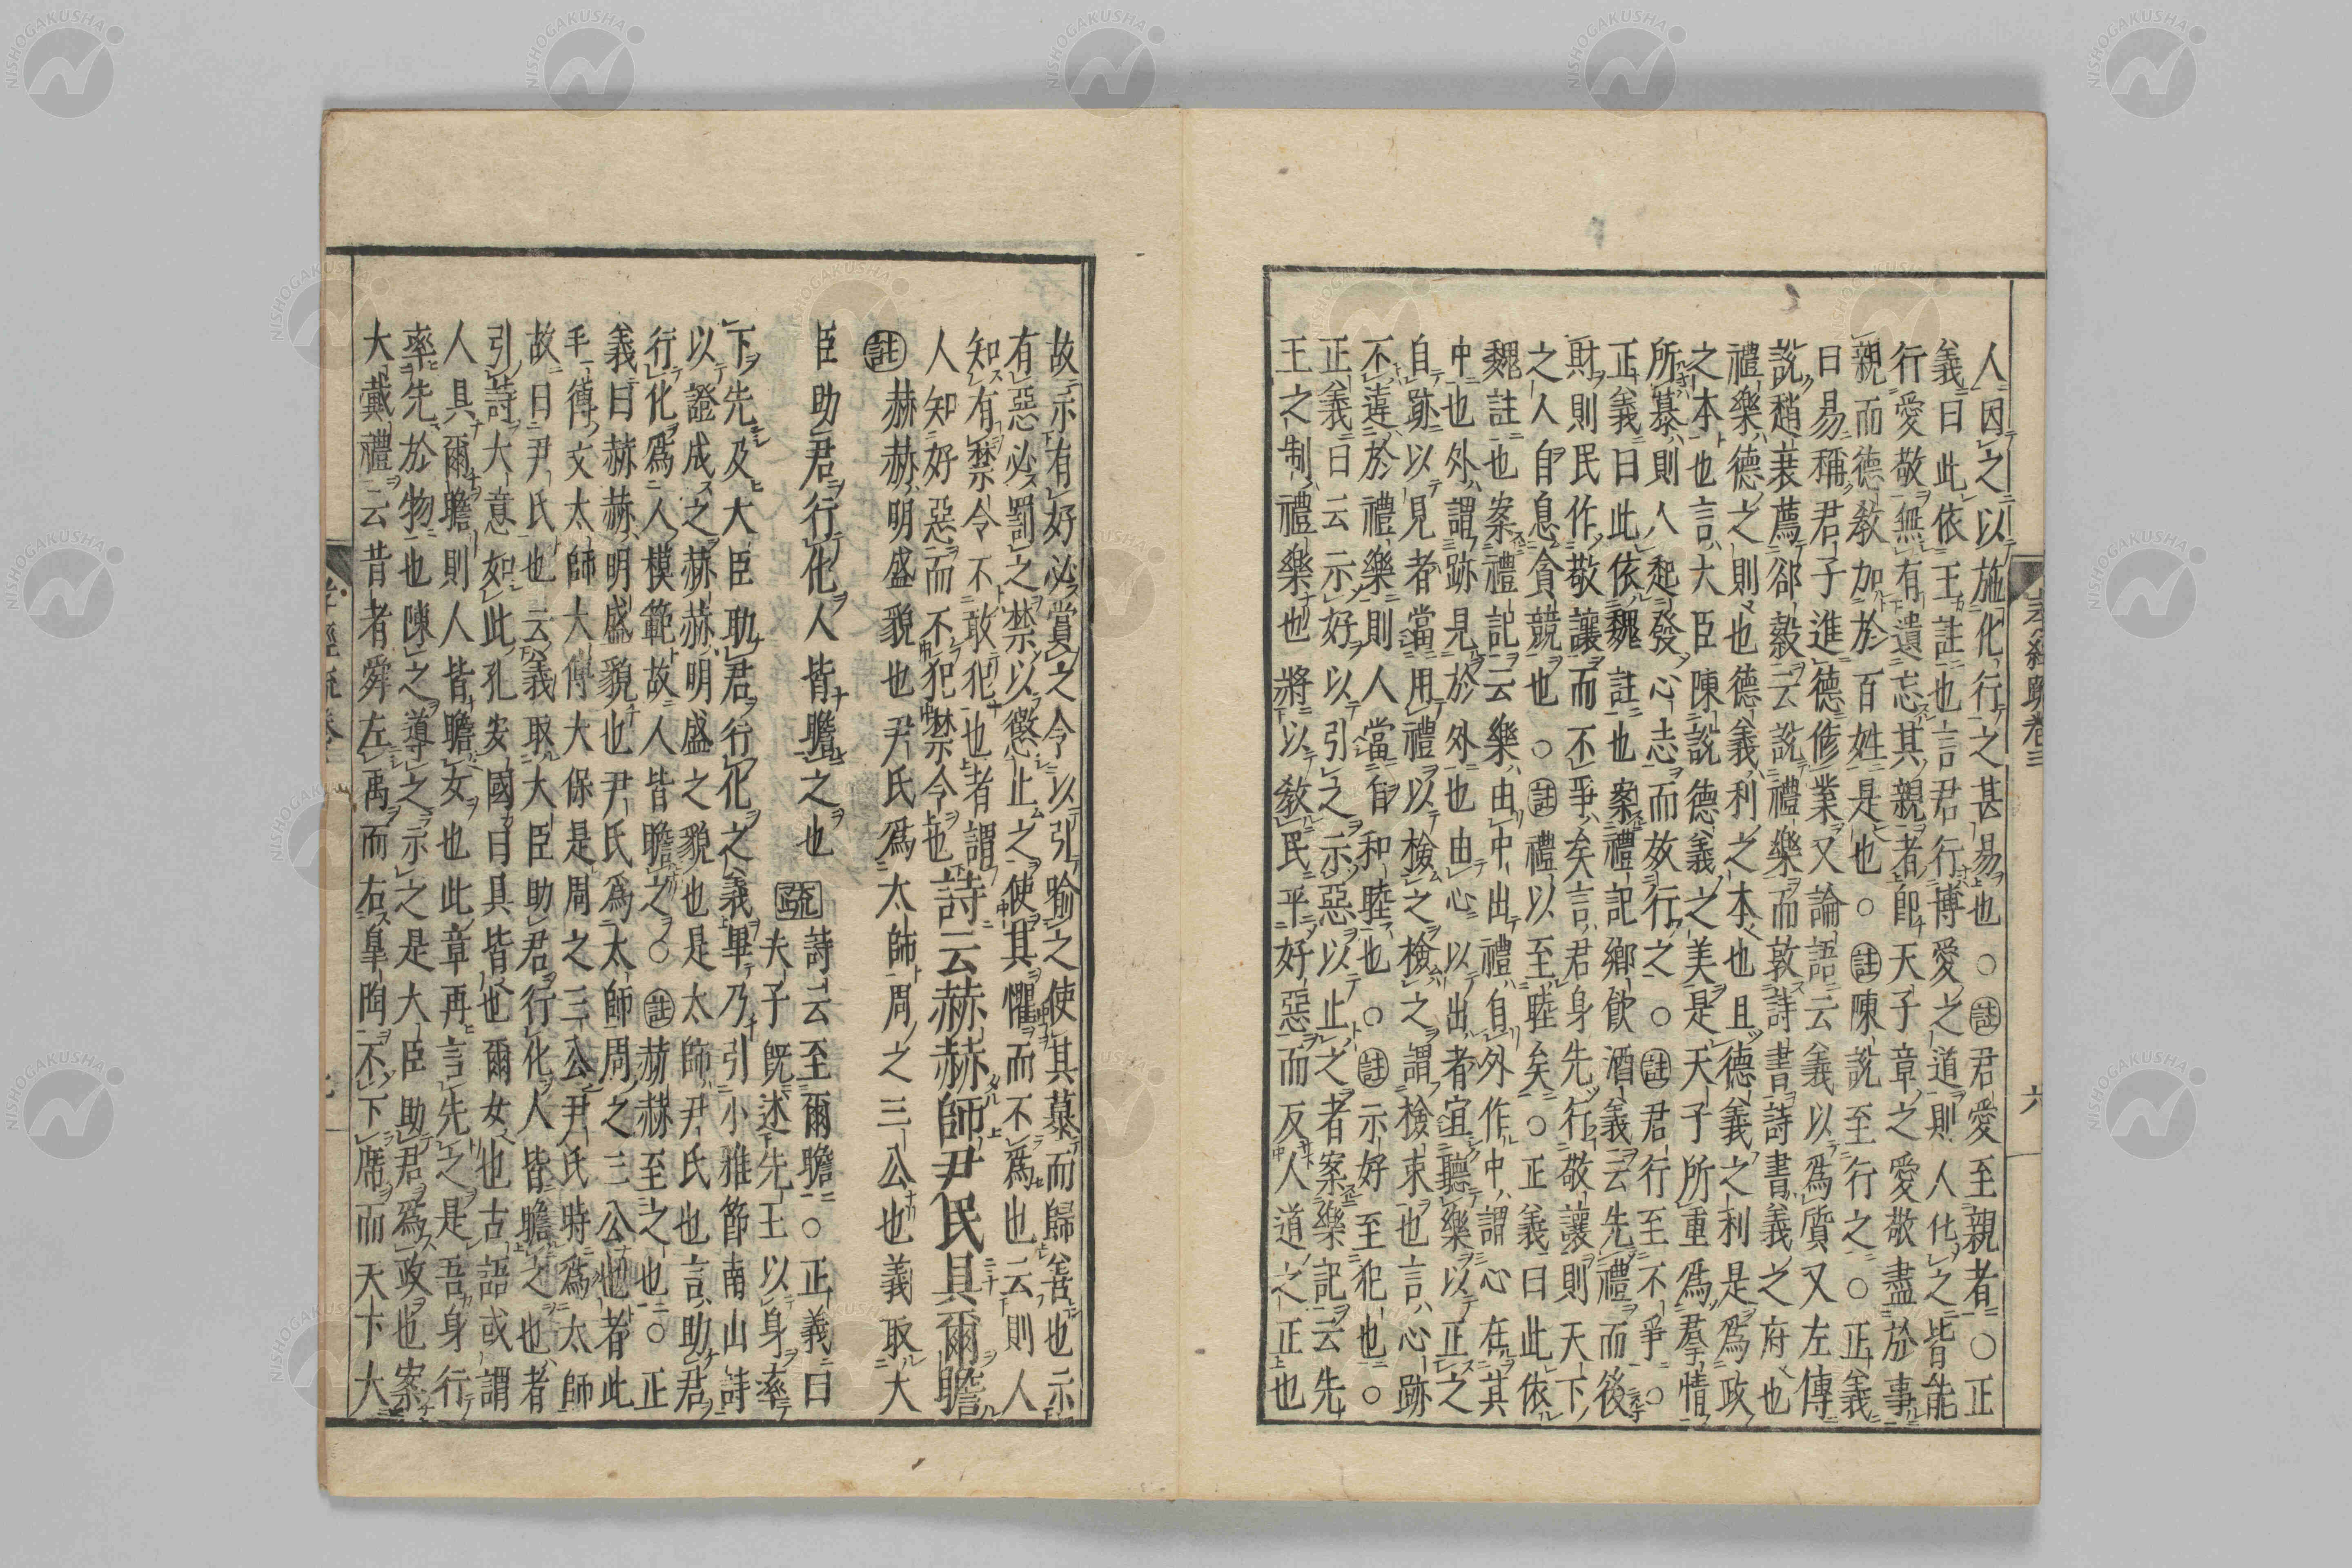 人因之以施化行之甚易也○註君愛至親者○正
義曰此依王註也言君行博愛之道則人化之皆能
行愛敬無有遺忘其親者即天子章之愛敬盡於事
親而德敎加於百姓是也○註陳説至行之○正義
曰易稱君子進德修業又論語云義以爲質又左傳
説趙衰薦郤縠云説禮樂而敦詩書詩書義之府也
禮樂德之則也德義利之本也且德義之利是爲政
之本也言大臣陳説德義之美是天子所重爲羣情
所慕則人起發心志而效行之○註君行至不爭○
正義曰此依魏註也案禮記鄉飲酒義云先禮而後
財則民作敬讓而不爭矣言君身先行敬讓則天下
之人自息貪競也○註禮以至睦矣○正義曰此依
魏註也案禮記云樂由中出禮自外作中謂心在其
中也外謂跡見於外也由心以出者宜聽樂以正之
自跡以見者當用禮以檢之檢之謂檢束也言心跡
不違於禮樂則人當自和睦也○註示好至犯也○
正義曰云示好以引之示惡以止之者案樂記云先
王之制禮樂也將以敎民平好惡而反人道之正也
孝經疏卷三
六
故示有好必賞之令以引喻之使其慕而歸善也示
有惡必罰之禁以懲止之使其懼而不爲也云則人
知有禁令不敢犯也者謂
人知好惡而不犯禁令也詩云赫赫師尹民具爾瞻
註赫赫明盛貌也尹氏爲太師周之三公也義取大
臣助君行化人皆瞻之也
疏詩云至爾瞻○正義曰
夫子旣述先王以身率
下先及大臣助君行化之義畢乃引小雅節南山詩
以證成之赫赫明盛之貌也是太師尹氏也言助君
行化爲人模範故人皆瞻之○註赫赫至之也○正
義曰赫赫明盛貌也尹氏爲太師周之三公也者此
毛傳文太師大傅大保是周之三公尹氏時爲太師
故曰尹氏也云義取大臣助君行化人皆瞻之也者
引詩大意如此孔安國曰具皆也爾女也古語或謂
人具爾瞻則人皆瞻女也此章再言先之是吾身行
率先於物也陳之導之示之是大臣助君爲政也案
大戴禮云昔者舜左禹而右皐陶不下席而天下大